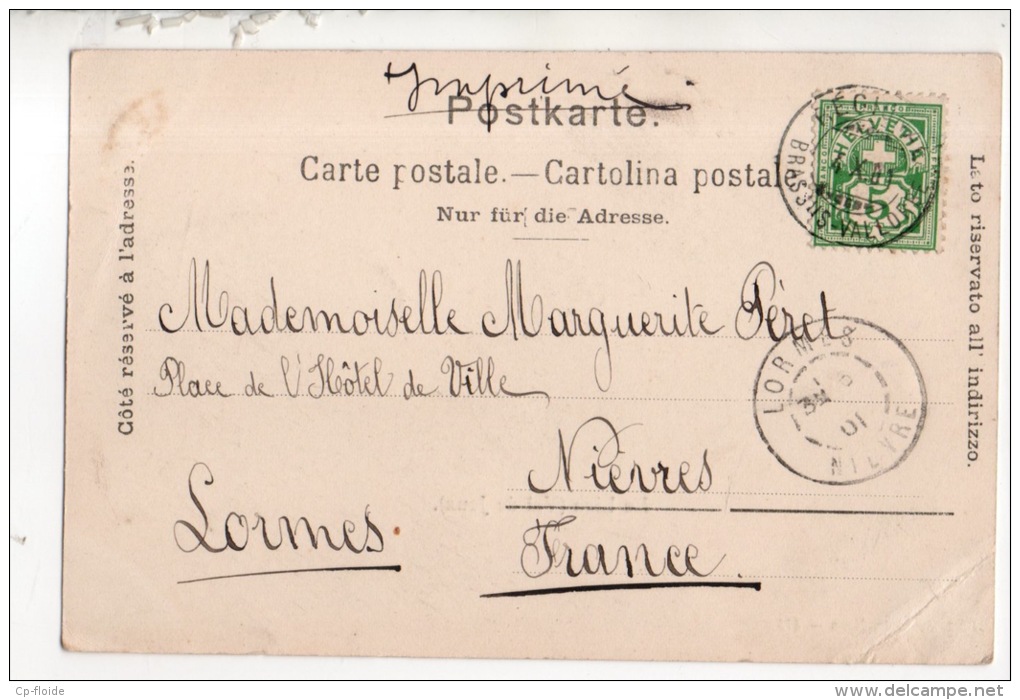 Imprimé
Postkarte.
Carte postale.—Cartolina postale
Nur für die Adresse.
Côté réservé à l'adresse.
Lato riservato all' indirizzo.
FRANCO
HELVETIA
5
BRASSUS VALLÉE
Mademoiselle Marguerite Péret
Place de l'Hôtel de Ville
Lormes
Nièvres
France.
LORMES
01
NIEVRE
Cp-floide
www.delcampe.net